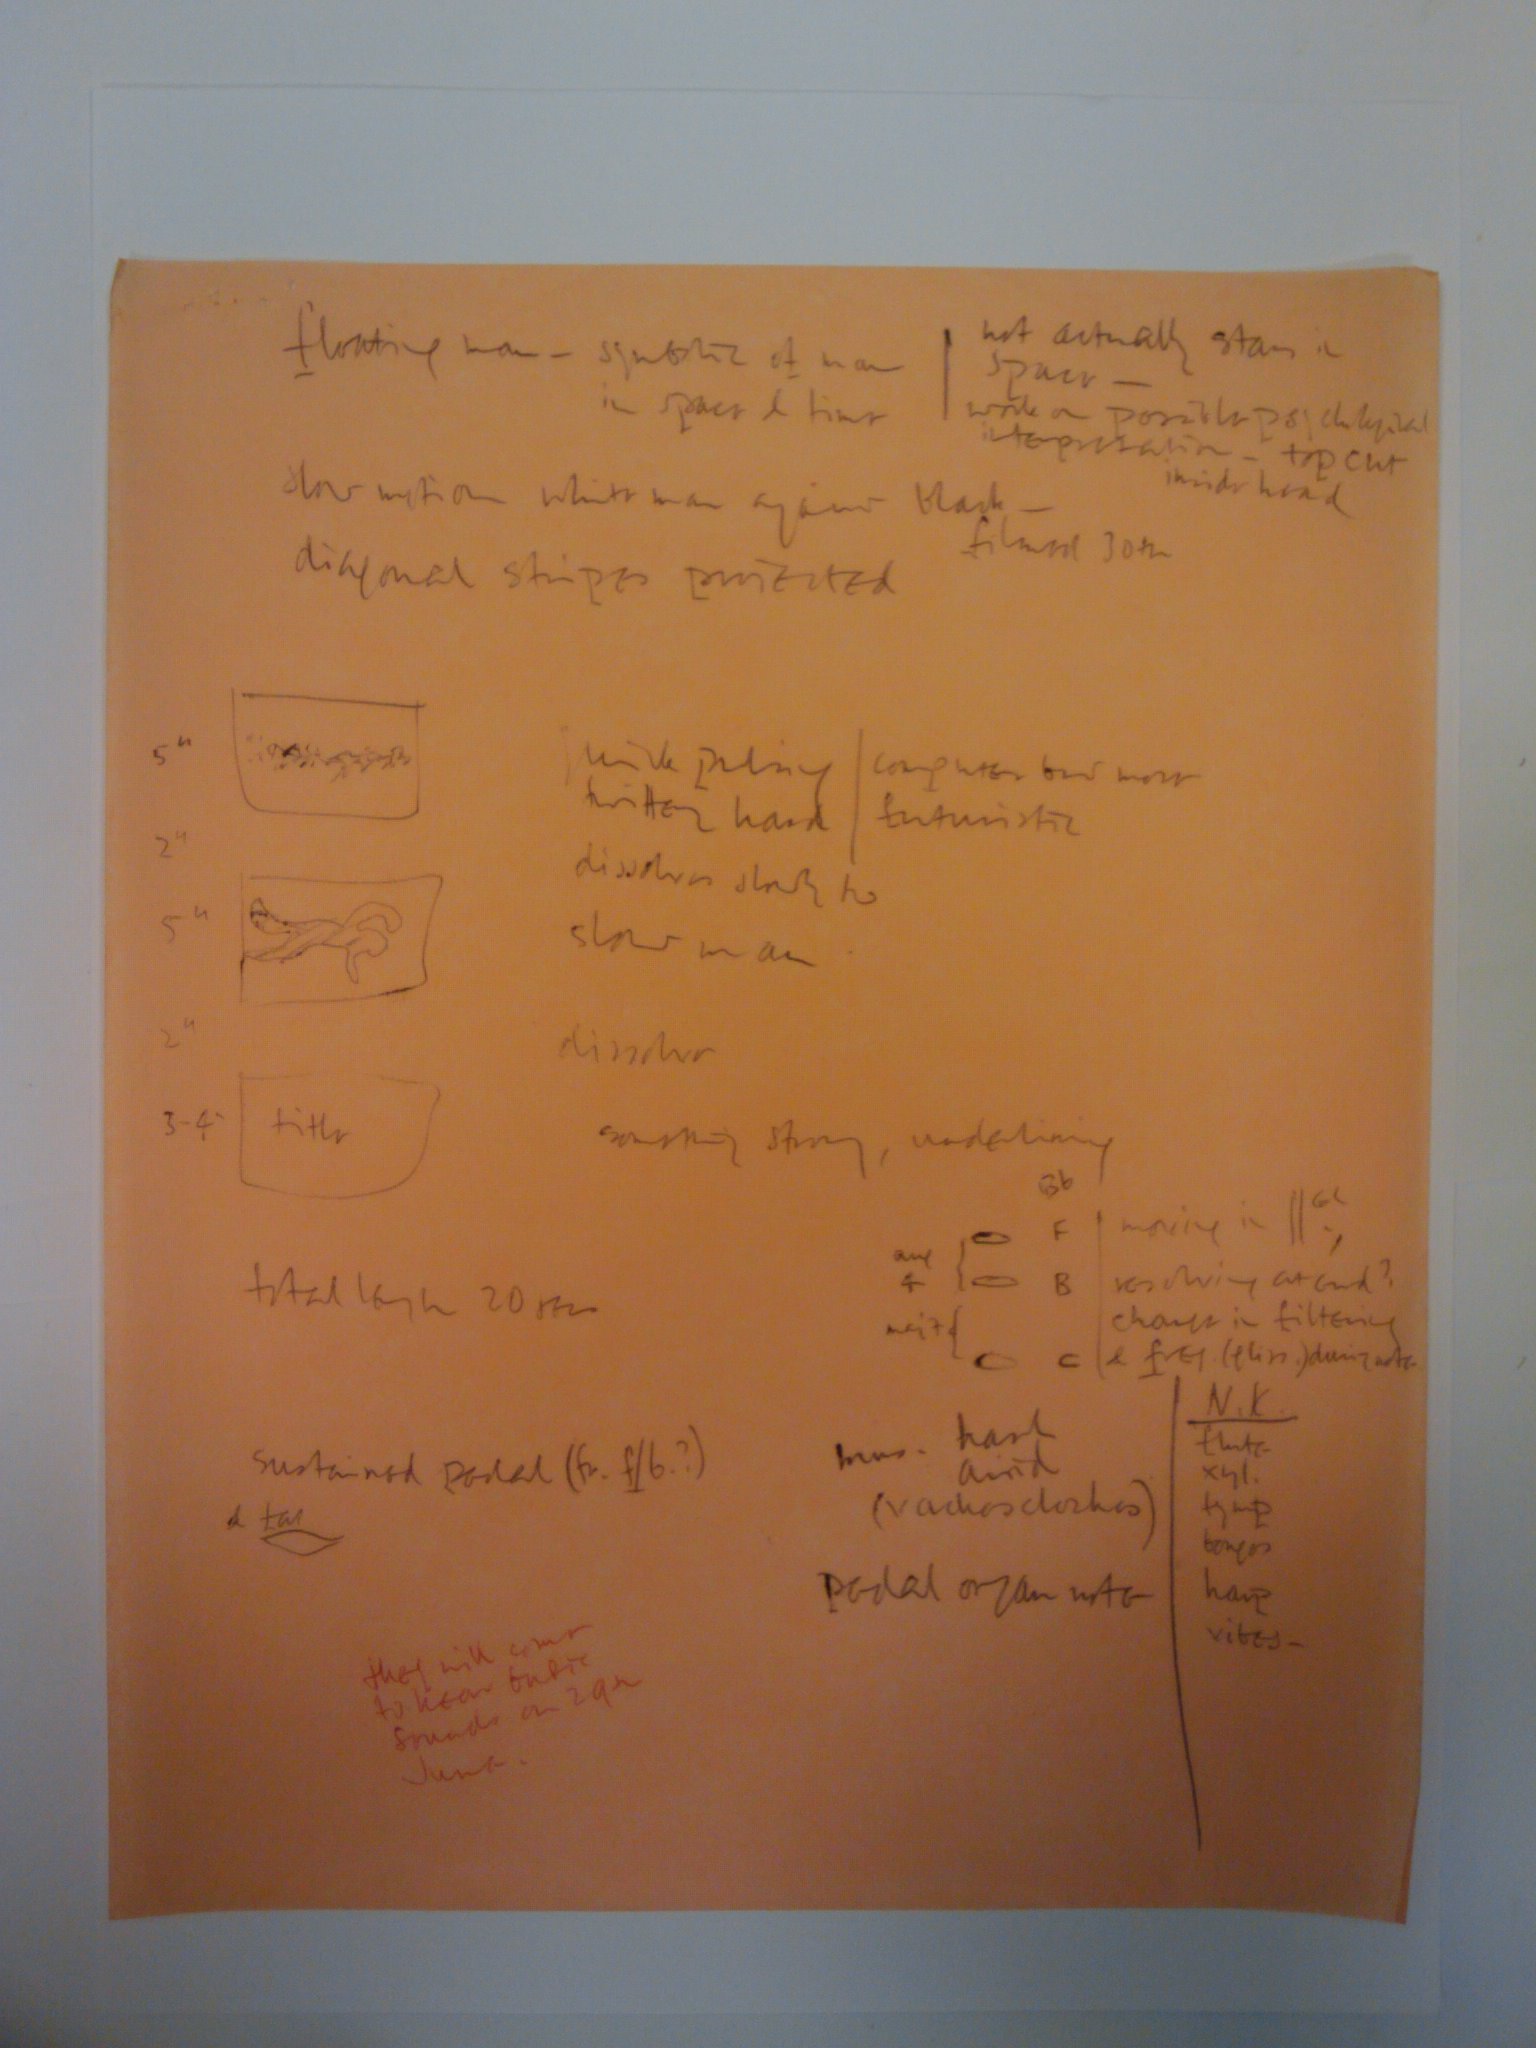 floating man – symbolic of man
in space & time
not actually stars in
space –
work on possible psychological
interpretation – top cut
inside head
slow motion white man against black –
filmed 30
diagonal stripes projected
5"
quick pulsing
twittery hard
computer but more
futuristic
2"
dissolves slowly to
5"
slow man
2"
dissolve
3-4"
title
something strong, underlining
Bb
F
B
C
aug
4
maj 7
moving in ||
resolving at end?
change in filtering
& freq (gliss.) during note
total length 20 secs
sustained pedal (fr. f/b.?)
mus. hard
avoid
pedal organ note
N.K.
flute
xyl.
tymp
bongos
harp
vibes –
they will come
to hear basic
sounds on 29th
June.